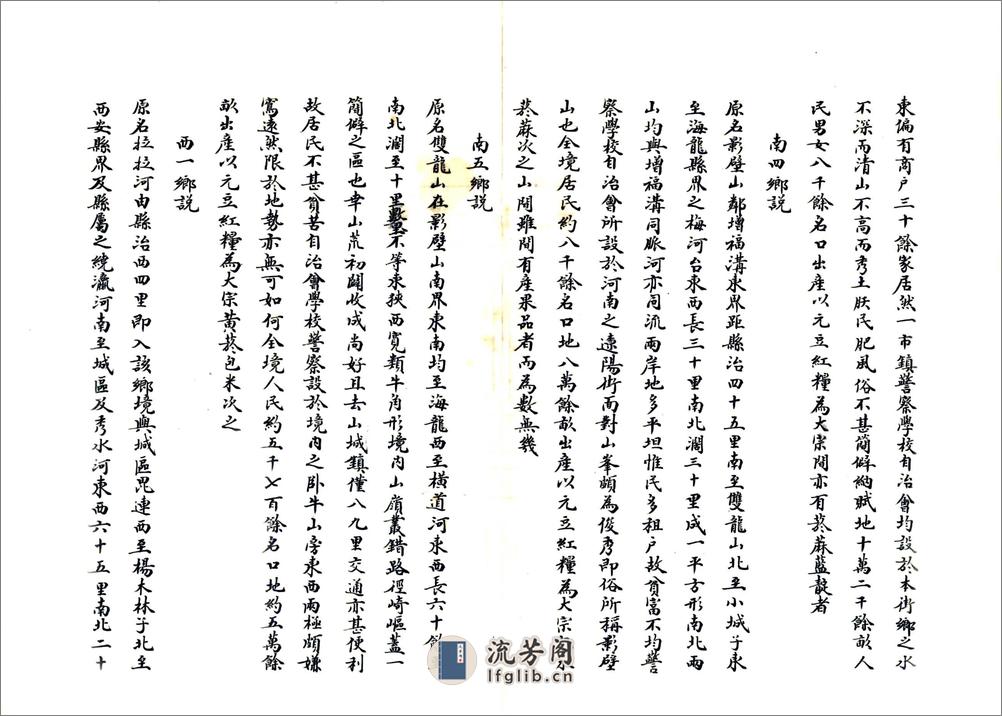 東偏有商户三十餘家居然一市鎮警察學校自治會均設於本街鄉之水
不深而清山不高而秀土肤民肥風俗不甚簡僻納賦地十萬二千餘畝人
民男女八千餘名口出産以元豆紅糧為大宗間亦有菸蔴藍靛者
南四鄉説
原名影壁山鄰增福溝東界距縣治四十五里南至雙龍山北至小城子東
至海龍縣界之梅河台東西長三十里南北濶三十里成一平方形南北兩
山均與增福溝同脈河亦同流兩岸地多平坦惟民多租户故貧富不均警
察學校自治會所設於河南之遠陽街而對山峯頗為俊秀即俗所稱影壁
山也全境居民約八千餘名口地八萬餘畝出産以元豆紅糧為大宗
菸蔴次之山間雖間有産果品者而為數無幾
南五鄉説
原名雙龍山在影壁山南界東南均至海龍西至橫道河東西長六十餘
南北濶至十里不等東狹西寬類牛角形境内山嶺叢錯路徑崎嶇蓋一
簡僻之區也幸山荒初闢收成尚好且去山城鎮僅八九里交通亦甚便利
故居民不甚貧苦自治會學校警察設於境内之卧牛山旁東西兩極頗嫌
寫遠然限於地勢亦無可如何全境人民約五千七百餘名口地約五萬餘
畝出産以元豆紅糧為大宗黄菸包米次之
西一鄉説
原名拉拉河由縣治西四里即入該鄉境與城區毘連西至楊木林子北至
西安縣界及縣屬之繞瀛河南至城區及秀水河東西六十五里南北二十
流芳阁
lfglib.cn